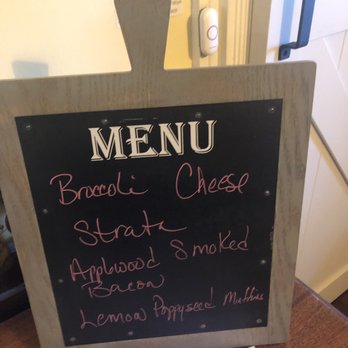 MENU
Broccoli Cheese
Strata
Applewood Smoked
Bacon
Lemon Poppyseed Muffins